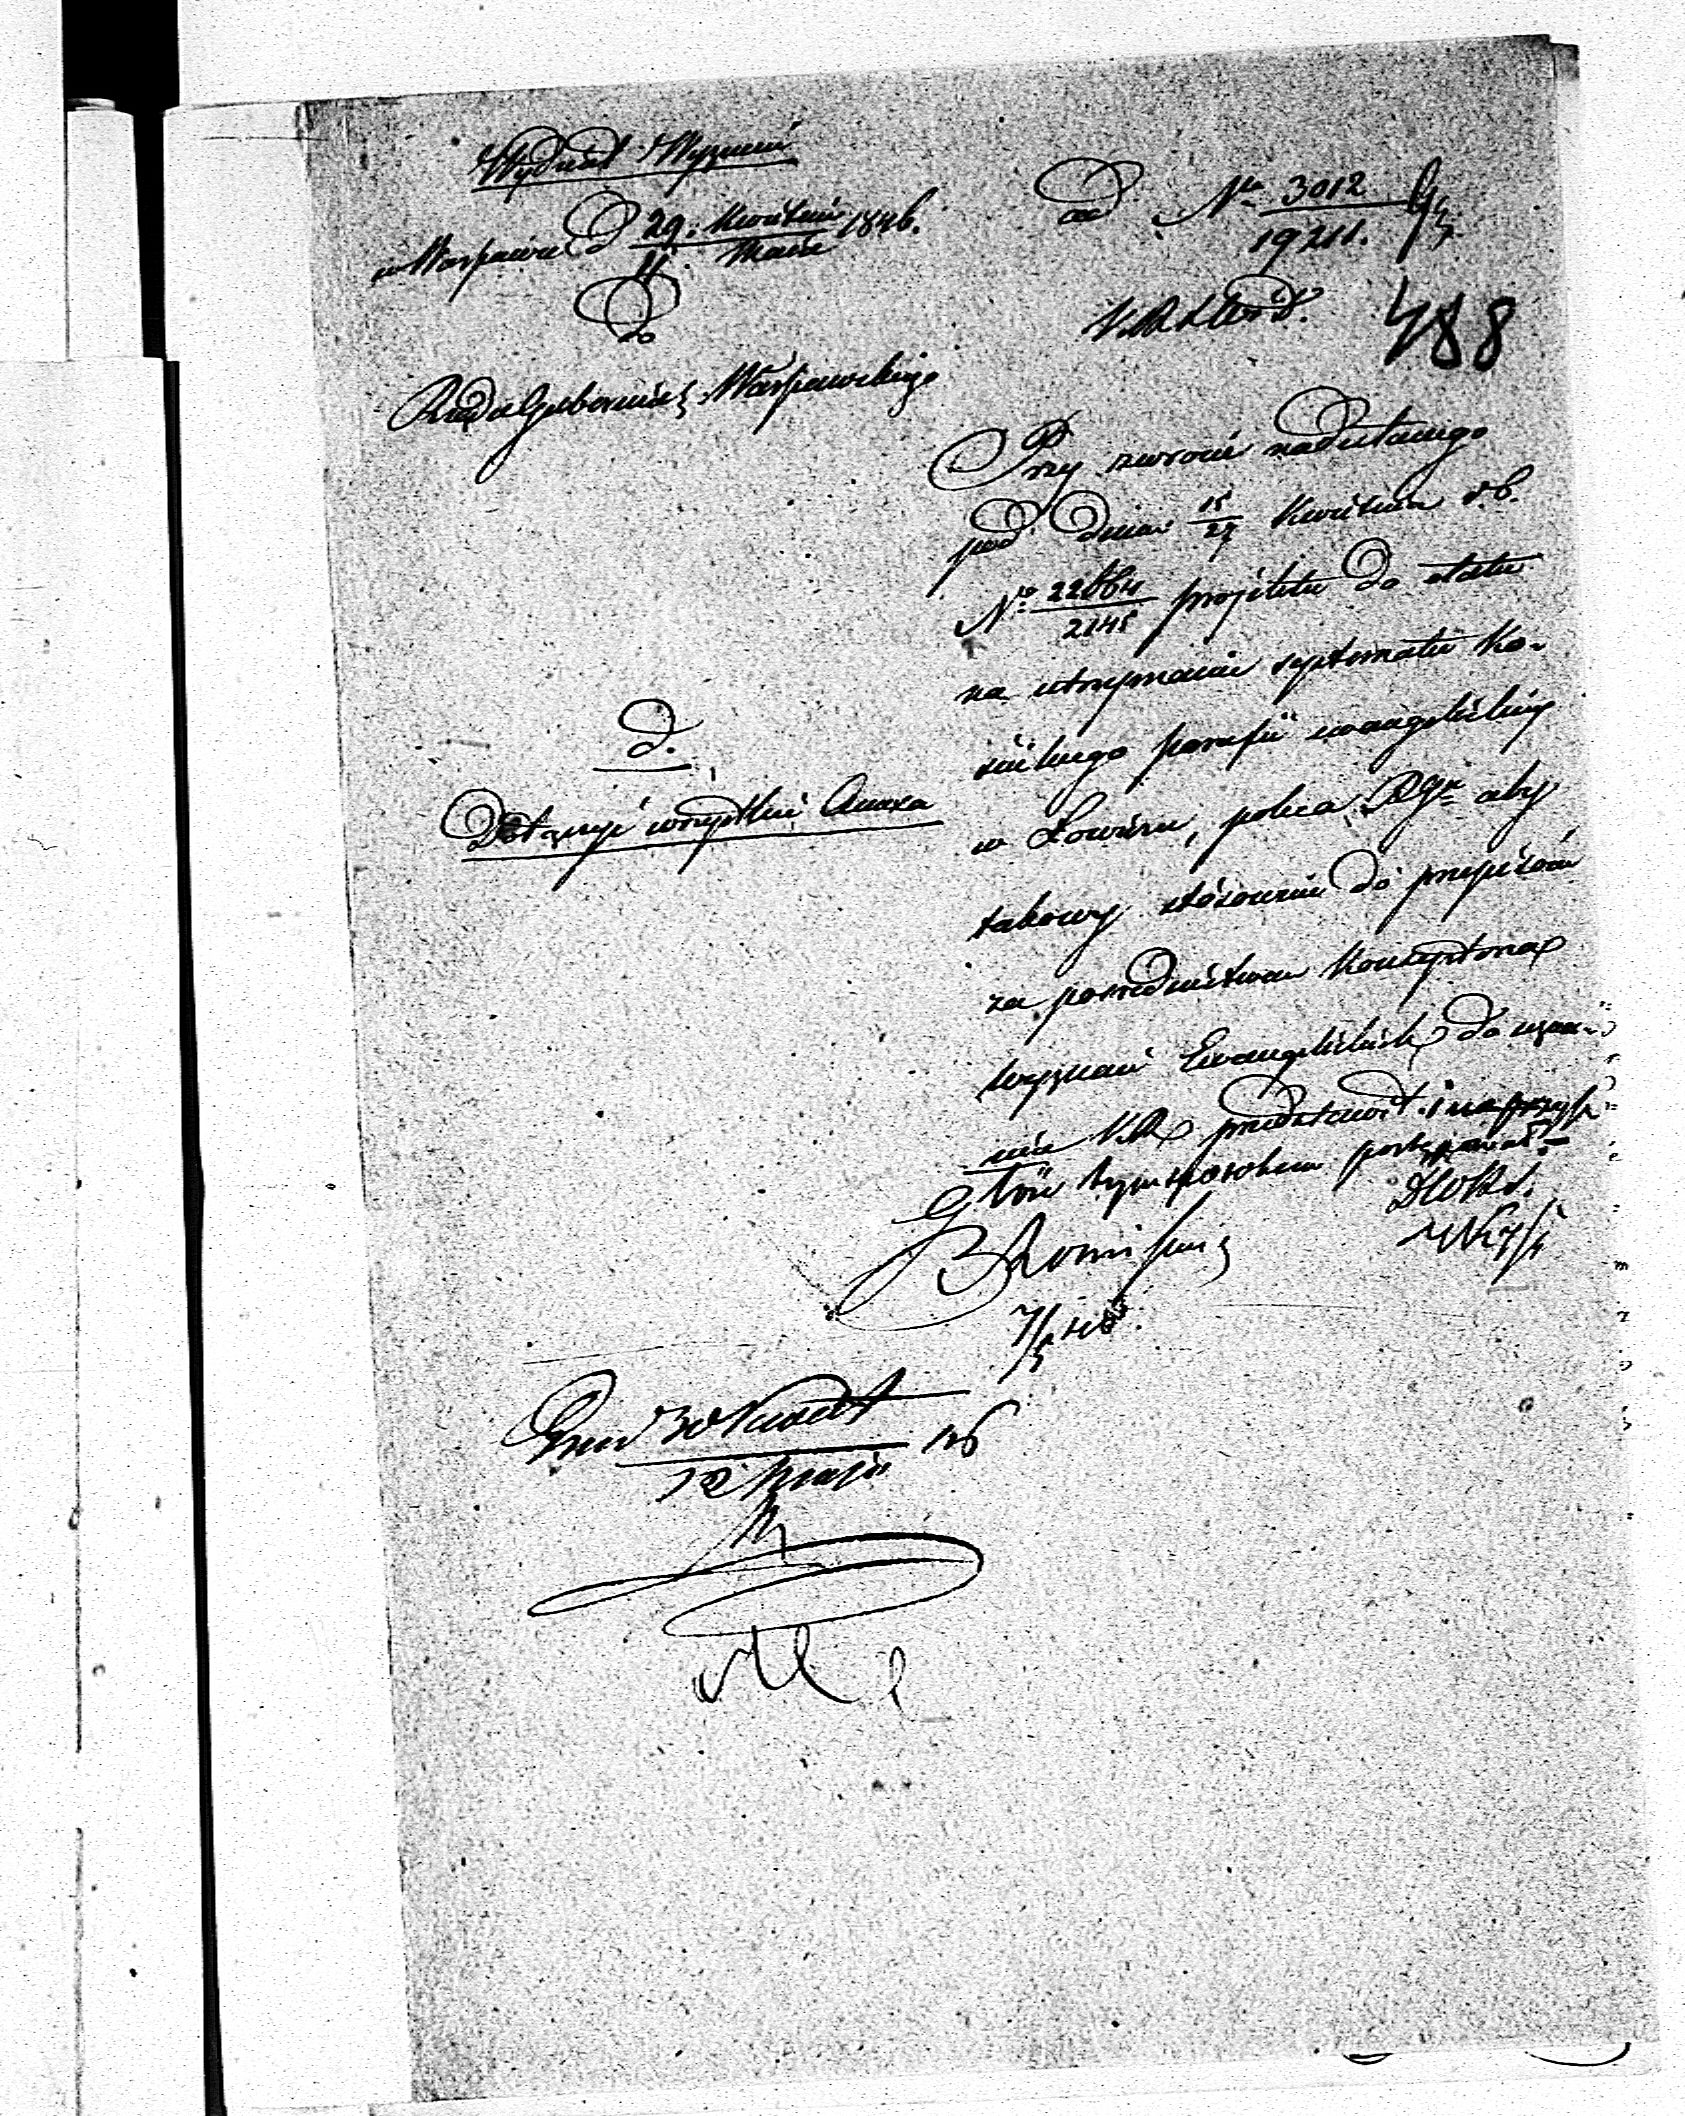 Wydział Wyznań
w Warszawie d 29. Kwietnia 1846.
11 Maia
Do
Rządu Gubernial. Warszawskiego
ad Nr 3012
19211.
488
Przy zwrocie nadesłanego
pod dniem 15/27 Kwietnia r.b.
No 22664/2145 projektu do etatu
na utrzymanie systematu Ko-
ścielnego parafii ewangelickiej
w Łowiczu, poleca RGu aby
takowy stosownie do przepisów
za pośrednictwem Konsystorza
wyznań Ewangelickich do uzna-
nia KR przedstawił i na przysz
łość tym sposobem postępował.
d.
Dołączyć wszystkie Anexa
7/5 846.
30 Kwiet
12 Maja 846